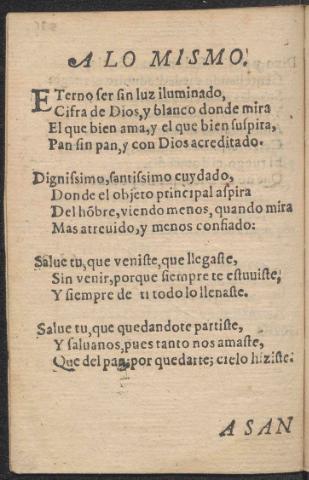 A LO MISMO.
ETerno ser sin luz iluminado,
Cifra de Dios, y blanco donde mira
El que bien ama, y el que bien suspira,
Pan sin pan, y con Dios acreditado.
Dignissimo, santissimo cuydado,
Donde el objeto principal aspira
Del hõbre, viendo menos, quando mira
Mas atreuido, y menos confiado:
Salue tu, que veniste, que llegaste,
Sin venir, porque siempre te estuuiste,
Y siempre de ti todo lo llenaste.
Salue tu, que quedandote partiste,
Y saluanos, pues tanto nos amaste,
Que del pan, por quedarte; cielo hiziste.
A SAN